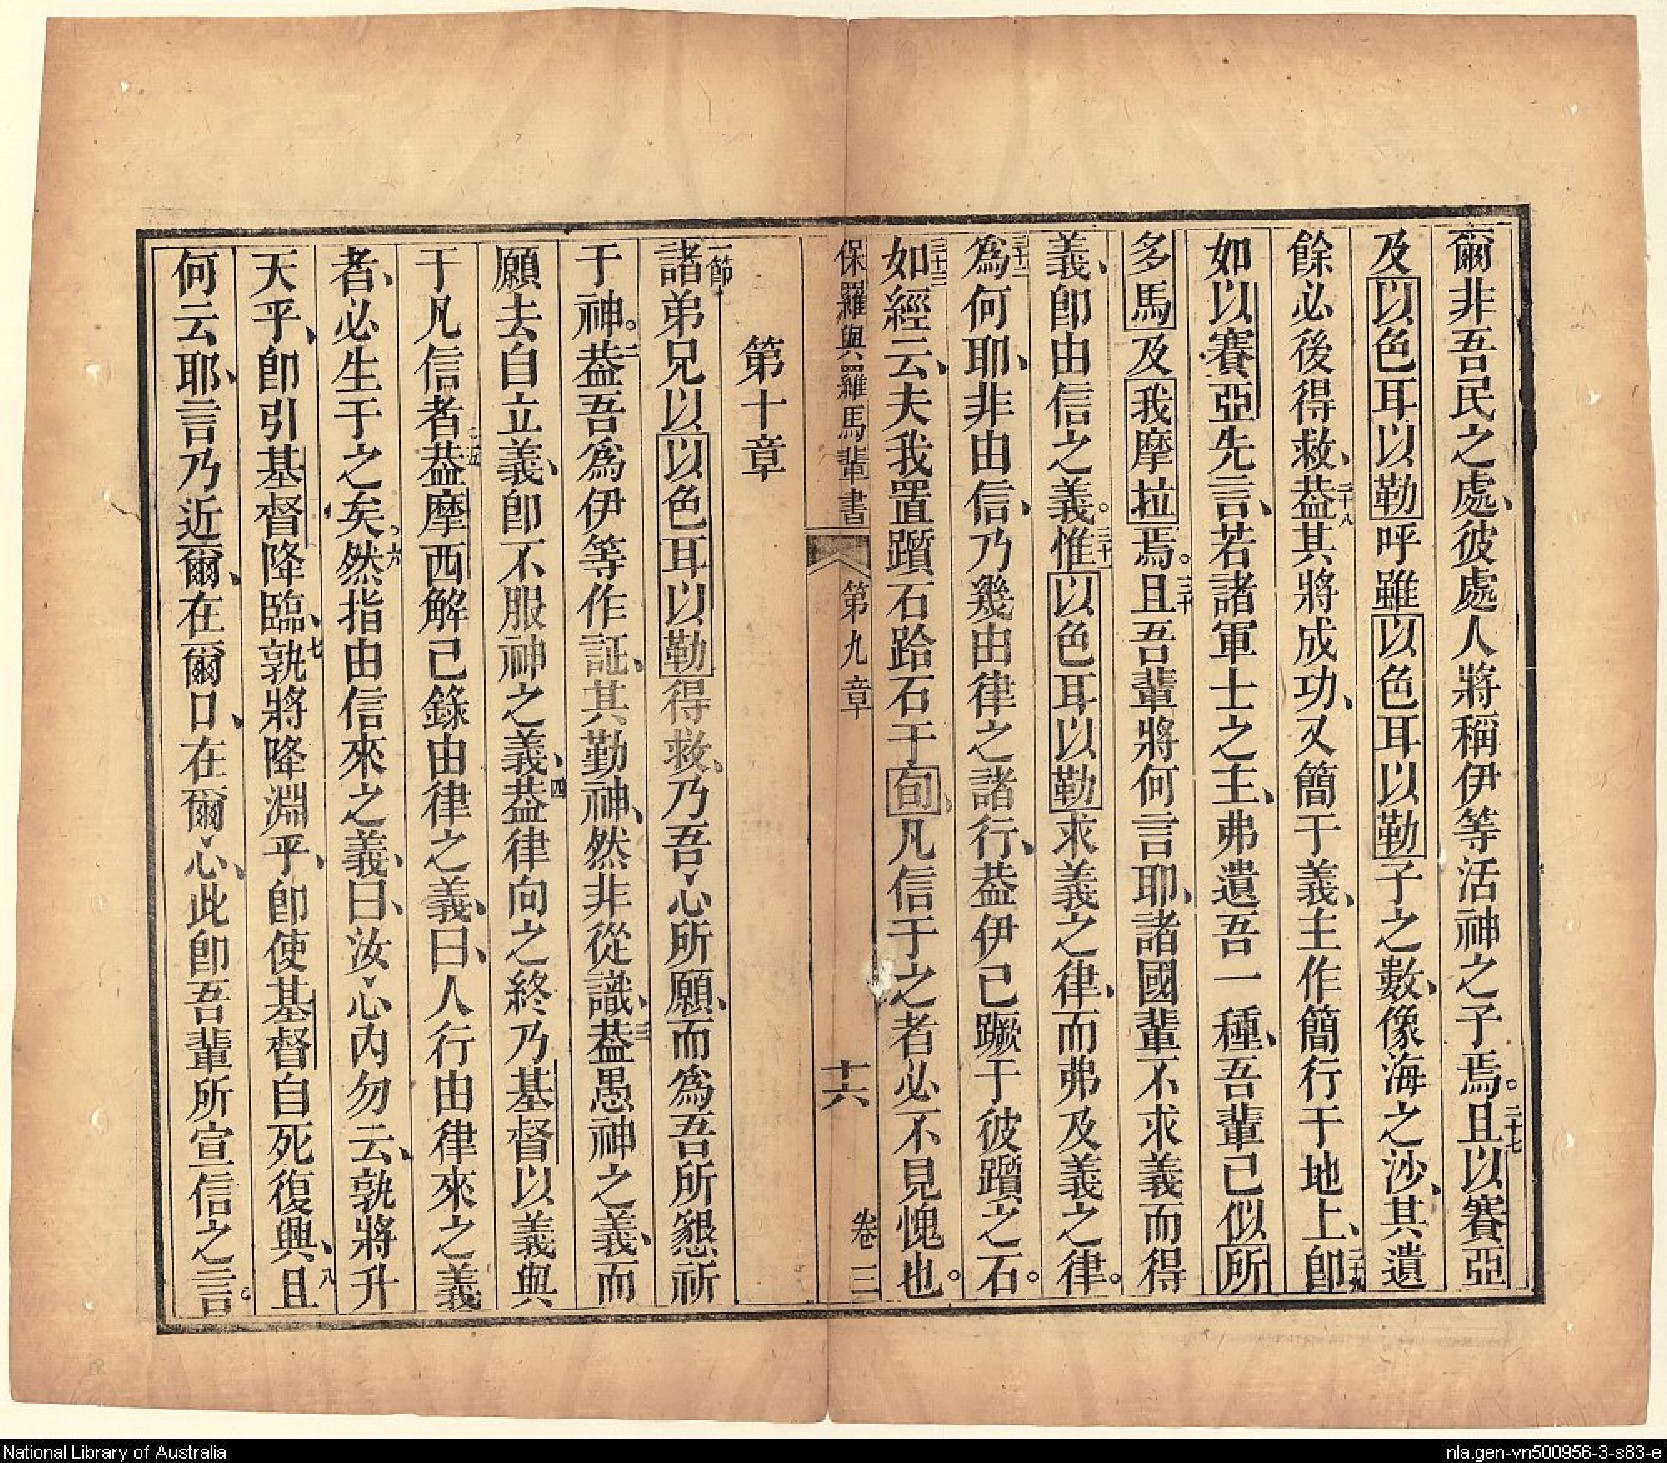 爾非吾民之處、彼處人將稱伊等活神之子焉。二十七且以賽亞
及以色耳以勒呼雖以色耳以勒子之數、像海之沙、其遺
餘必後得救、二十八葢其將成功、又簡于義、主作簡行于地上、二十九卽
如以賽亞先言、若諸軍士之主、弗遺吾一種、吾輩已似所
多馬及我摩拉焉。三十且吾輩將何言耶、諸國輩不求義而得
義、卽由信之義。三十一惟以色耳以勒求義之律、而弗及義之律。
三十二為何耶、非由信、乃幾由律之諸行、葢伊已蹶于彼躓之石。
三十三如經云、夫我置躓石跲石于旬、凡信于之者必不見愧也。
保羅與羅馬輩書 第九章 十六 卷三
第十章
一節諸弟兄以以色耳以勒得救、乃吾心所願、而為吾所懇祈
于神。二葢吾為伊等作証、其勤神、然非從識、三葢愚神之義、而
願去自立義、卽不服神之義、四葢律向之終乃基督以義與
于凡信者、五葢摩西解己錄由律之義、曰、人行由律來之義
者、必生于之矣、六然指由信來之義、曰、汝心內勿云、孰將升
天乎、卽引基督降臨、七孰將降淵乎、卽使基督自死復興、八且
何云耶、言乃近爾、在爾口、在爾心、此卽吾輩所宣信之言。
National Library of Australia
nla.gen-vn500956-3-s83-e